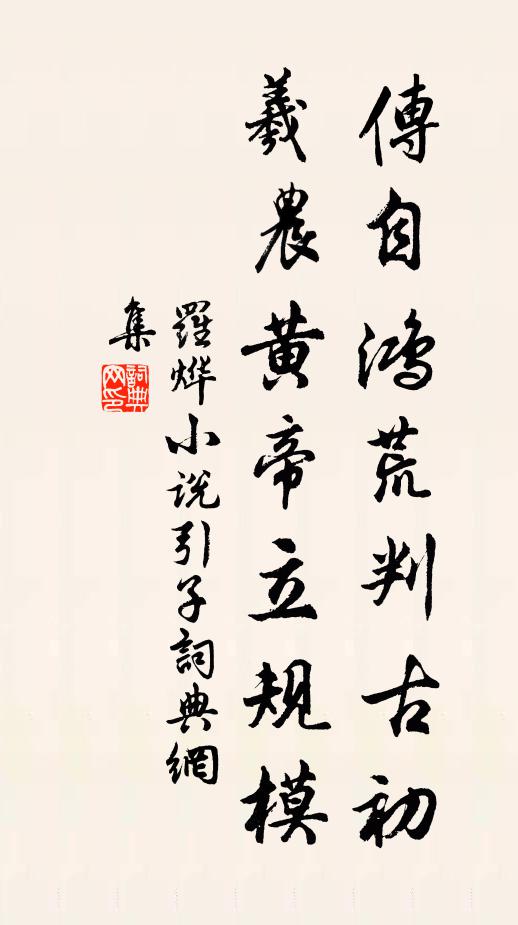 傳自鴻荒判古初
羲農黃帝立規模
羅燁小説引子詞典網
集
詞典網印